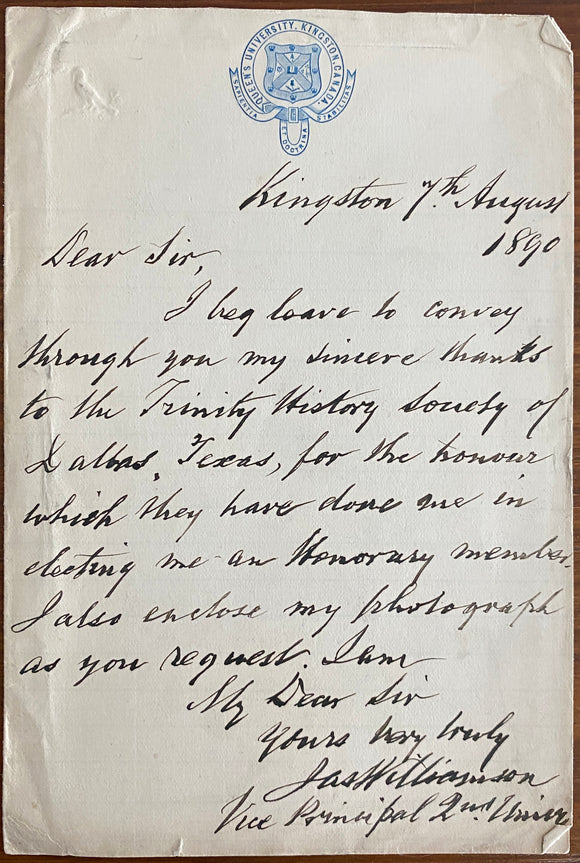 QUEEN'S UNIVERSITY, KINGSTON, CANADA.
SAPIENTIA ET DOCTRINA STABILITAS
Kingston 7th August
1890
Dear Sir,
I beg leave to convey
through you my sincere thanks
to the Trinity History Society of
Dallas, Texas, for the honour
which they have done me in
electing me an Honorary member.
I also enclose my photograph
as you request. I am
My Dear Sir
Yours very truly
Jas Williamson
Vice Principal Qns Univ